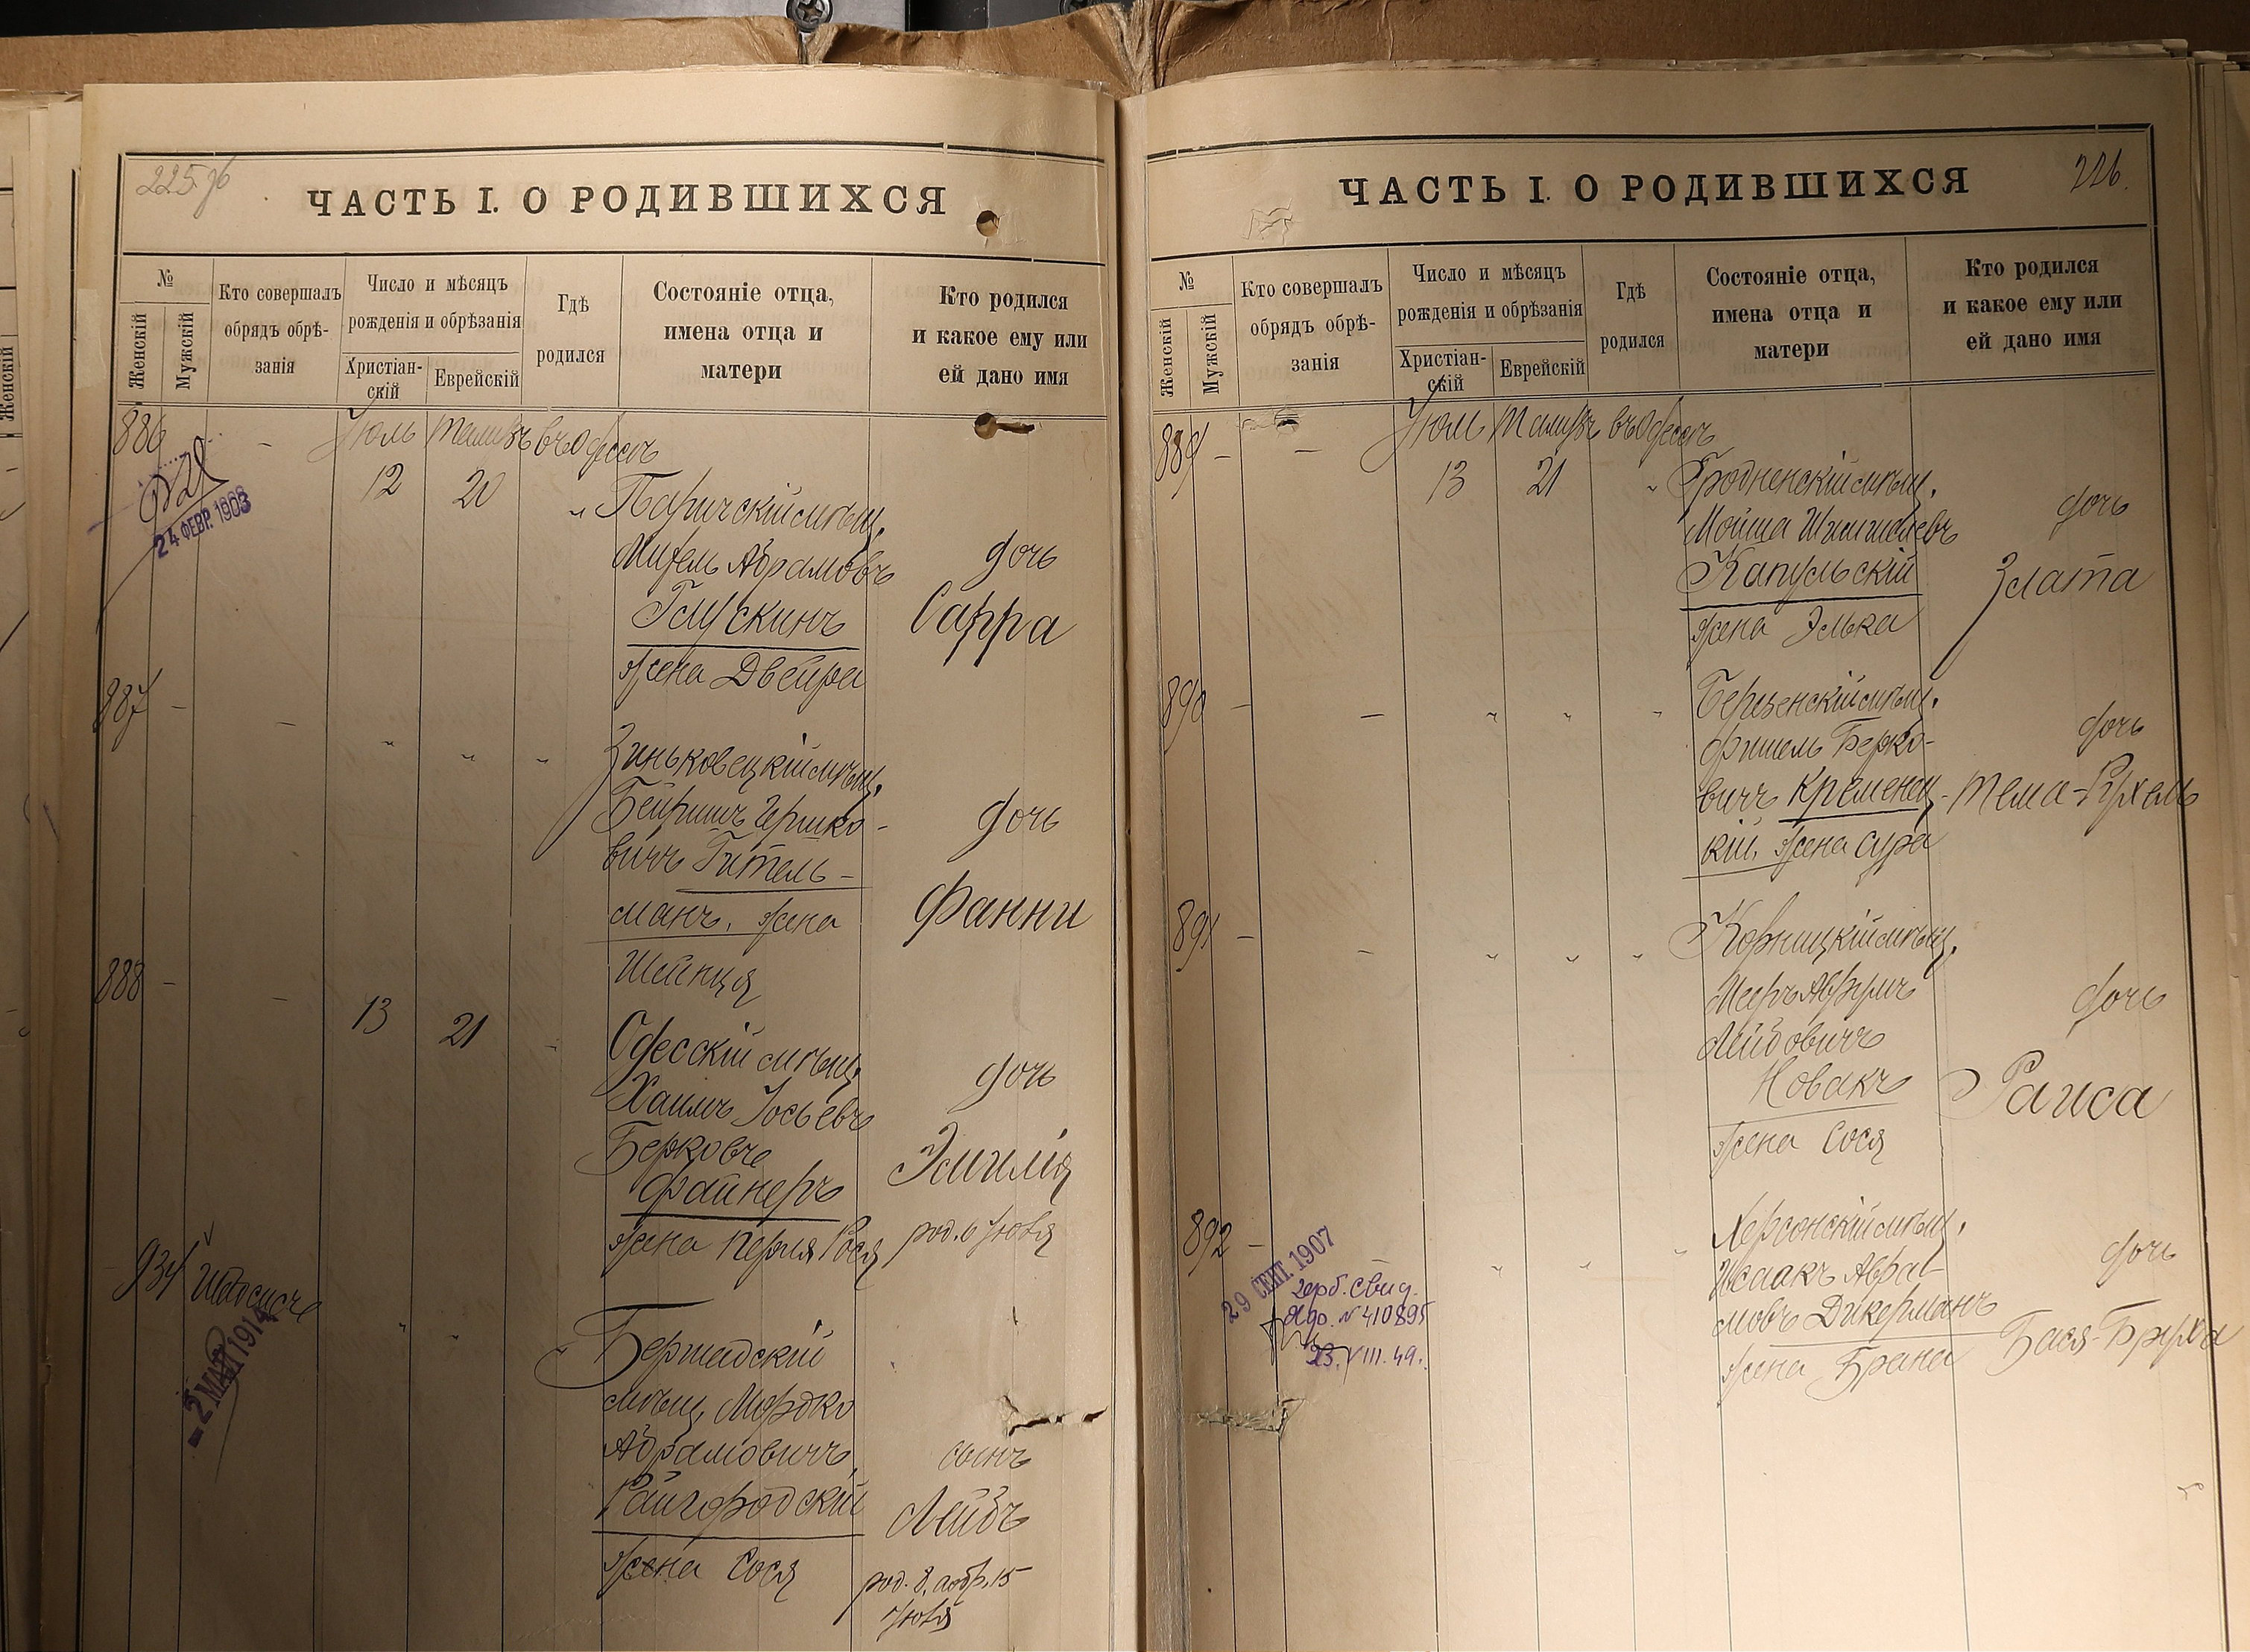 225 об
ЧАСТЬ I. О РОДИВШИХСЯ
№
Женскій
Мужскій
Кто совершалъ
обрядъ обрѣ-
занія
Число и мѣсяцъ
рожденія и обрѣзанія
Христіан-
скій
Еврейскій
Гдѣ
родился
Состояніе отца,
имена отца и
матери
Кто родился
и какое ему или
ей дано имя
886 - Іюль Тамузъ въ Одессѣ
24 ФЕВР. 1903
12 20 "
Паричскій мѣщ.
Абрамовъ
Глускинъ
жена Двейра
дочь
Сарра
887 - - " " "
Зиньковецкій мѣщ.
Бейришъ Гершко-
вичъ Гитель-
манъ, жена
Шейнця
дочь
Фанни
888 - - 13 21 "
Одесскій мѣщ.
Хаимъ Іосьевъ
Берковъ
Файнеръ
жена Перля Рося
дочь
Эмилія
род. 6 Іюля
934 " "
- 2 МАЙ 1914
Бершадскій
мѣщ. Мордко
Абрамовичъ
Райгородскій
жена Сося
сынъ
Лейбъ
род. 8, а обр. 15
Іюля
226.
ЧАСТЬ I. О РОДИВШИХСЯ
№
Женскій
Мужскій
Кто совершалъ
обрядъ обрѣ-
занія
Число и мѣсяцъ
рожденія и обрѣзанія
Христіан-
скій
Еврейскій
Гдѣ
родился
Состояніе отца,
имена отца и
матери
Кто родился
и какое ему или
ей дано имя
889 - - Іюль Тамузъ въ Одессѣ
13 21 "
Гродненскій мѣщ.
Мойша
Капульскій
жена Элька
дочь
Злата
890 - - " " "
мѣщ.
Фишель Берко-
вичъ Кременец-
кій, жена Сура
дочь
Тема-Рухель
891 - - " " "
Корницкій мѣщ.
Лейбовичъ
Новакъ
жена Сося
дочь
Раиса
892 - " " "
29 СЕНТ. 1907
герб. свид.
№ 410895
23.VIII.49.
Херсонскій мѣщ.
Исаакъ Абра-
мовъ Дикерманъ
жена Брана
дочь
Бася-Бруха